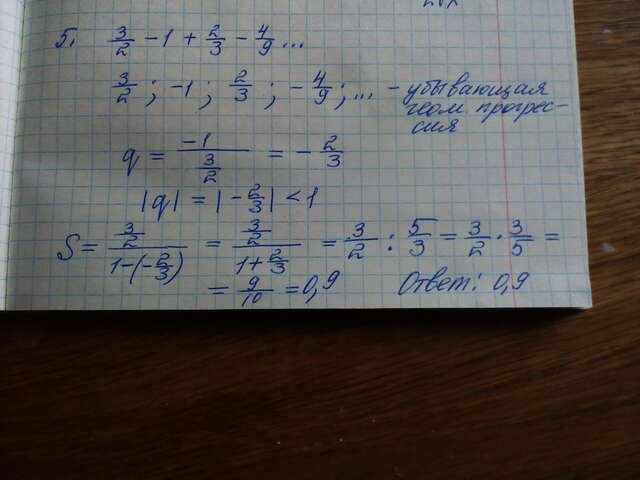 5. 3/2 - 1 + 2/3 - 4/9 ...
3/2 ; -1 ; 2/3 ; - 4/9 ; ... - убывающая
геом. прогрес-
сия
q = -1 / (3/2) = - 2/3
|q| = |- 2/3| < 1
S = (3/2) / (1-(-2/3)) = (3/2) / (1+2/3) = 3/2 : 5/3 = 3/2 · 3/5 =
= 9/10 = 0,9 Ответ: 0,9